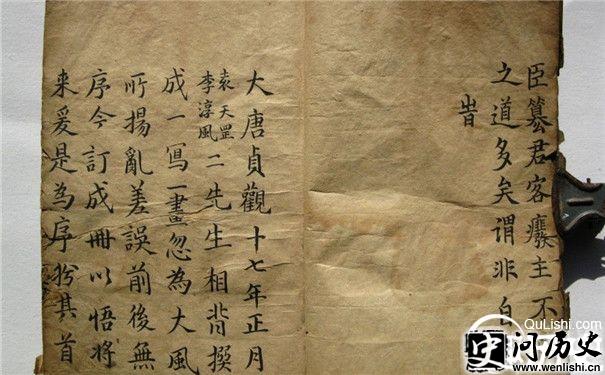 臣篡君客癈主不
之道多矣謂非
大唐貞觀十七年正月
袁天罡
李淳風
二先生相背撰
成一寫一畫忽為大風
所揚亂差誤前後無
序今訂成冊以悟將
来爰是為序於其首
QuLishi.com
问历史
www.wenlishi.cn